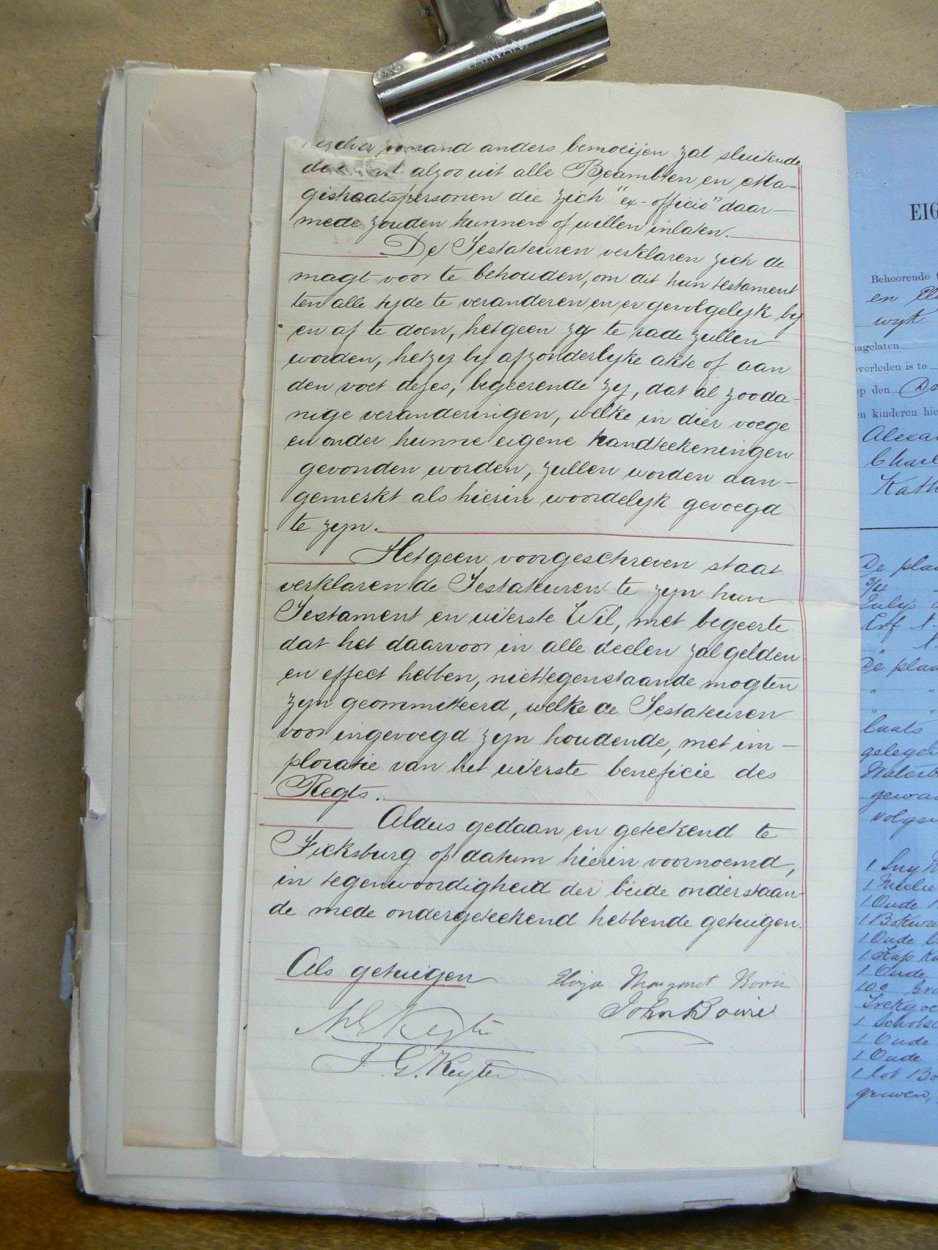 TAIWAN
anders bemoeijen zal sluitende
alzoo uit alle Beambten en Ma-
gistraatspersonen die zich "ex-officio" daar-
mede zouden kunnen of willen inlaten.
De Testateuren verklaren zich de
magt voor te behouden, om dit hun testament
ten alle tyde te veranderen en er gevolgelyk by
en af te doen, hetgeen zy te rade zullen
worden, hetzy by afzonderlyke akte of aan
den voet dezes, begeerende zy, dat al zooda-
nige veranderingen, welke in dier voege
en onder hunne eigene handteekeningen
gevonden worden, zullen worden aan-
gemerkt als hierin woordelyk gevoegd
te zyn.
Hetgeen voorgeschreven staat
verklaren de Testateuren te zyn hun
Testament en uiterste Wil, met begeerte
dat het daarvoor in alle deelen zal gelden
en effect hebben, niettegenstaande mogten
zyn geommitteerd, welke de Testateuren
voor ingevoegd zyn houdende, met im-
ploratie van het uiterste beneficie des
Regts.
Aldus gedaan en geteekend te
Ficksburg op datum hierin voornoemd,
in tegenwoordigheid der beide onderstaan-
de mede ondergeteekend hebbende getuigen.
Als getuigen
Eliza Margaret Bowie
John Bowie
Keyter
J. G. Keyter
EIG
Behoorende
en
wyk
nagelaten
overleden is te
op den De
en kinderen hie
Alexa
Charl
Kath
De plaa
3/4
July's
Erf
De plaa
" "
laats
gelegen
Waterb
gewa
volgen
1
1
1 Oude
1 Bokwa
1 Oude
1 Kap Ka
1 Oude
Trekgoe
1 Schotsc
1 Oude
1 Oude
1 lot Bo
geweer,